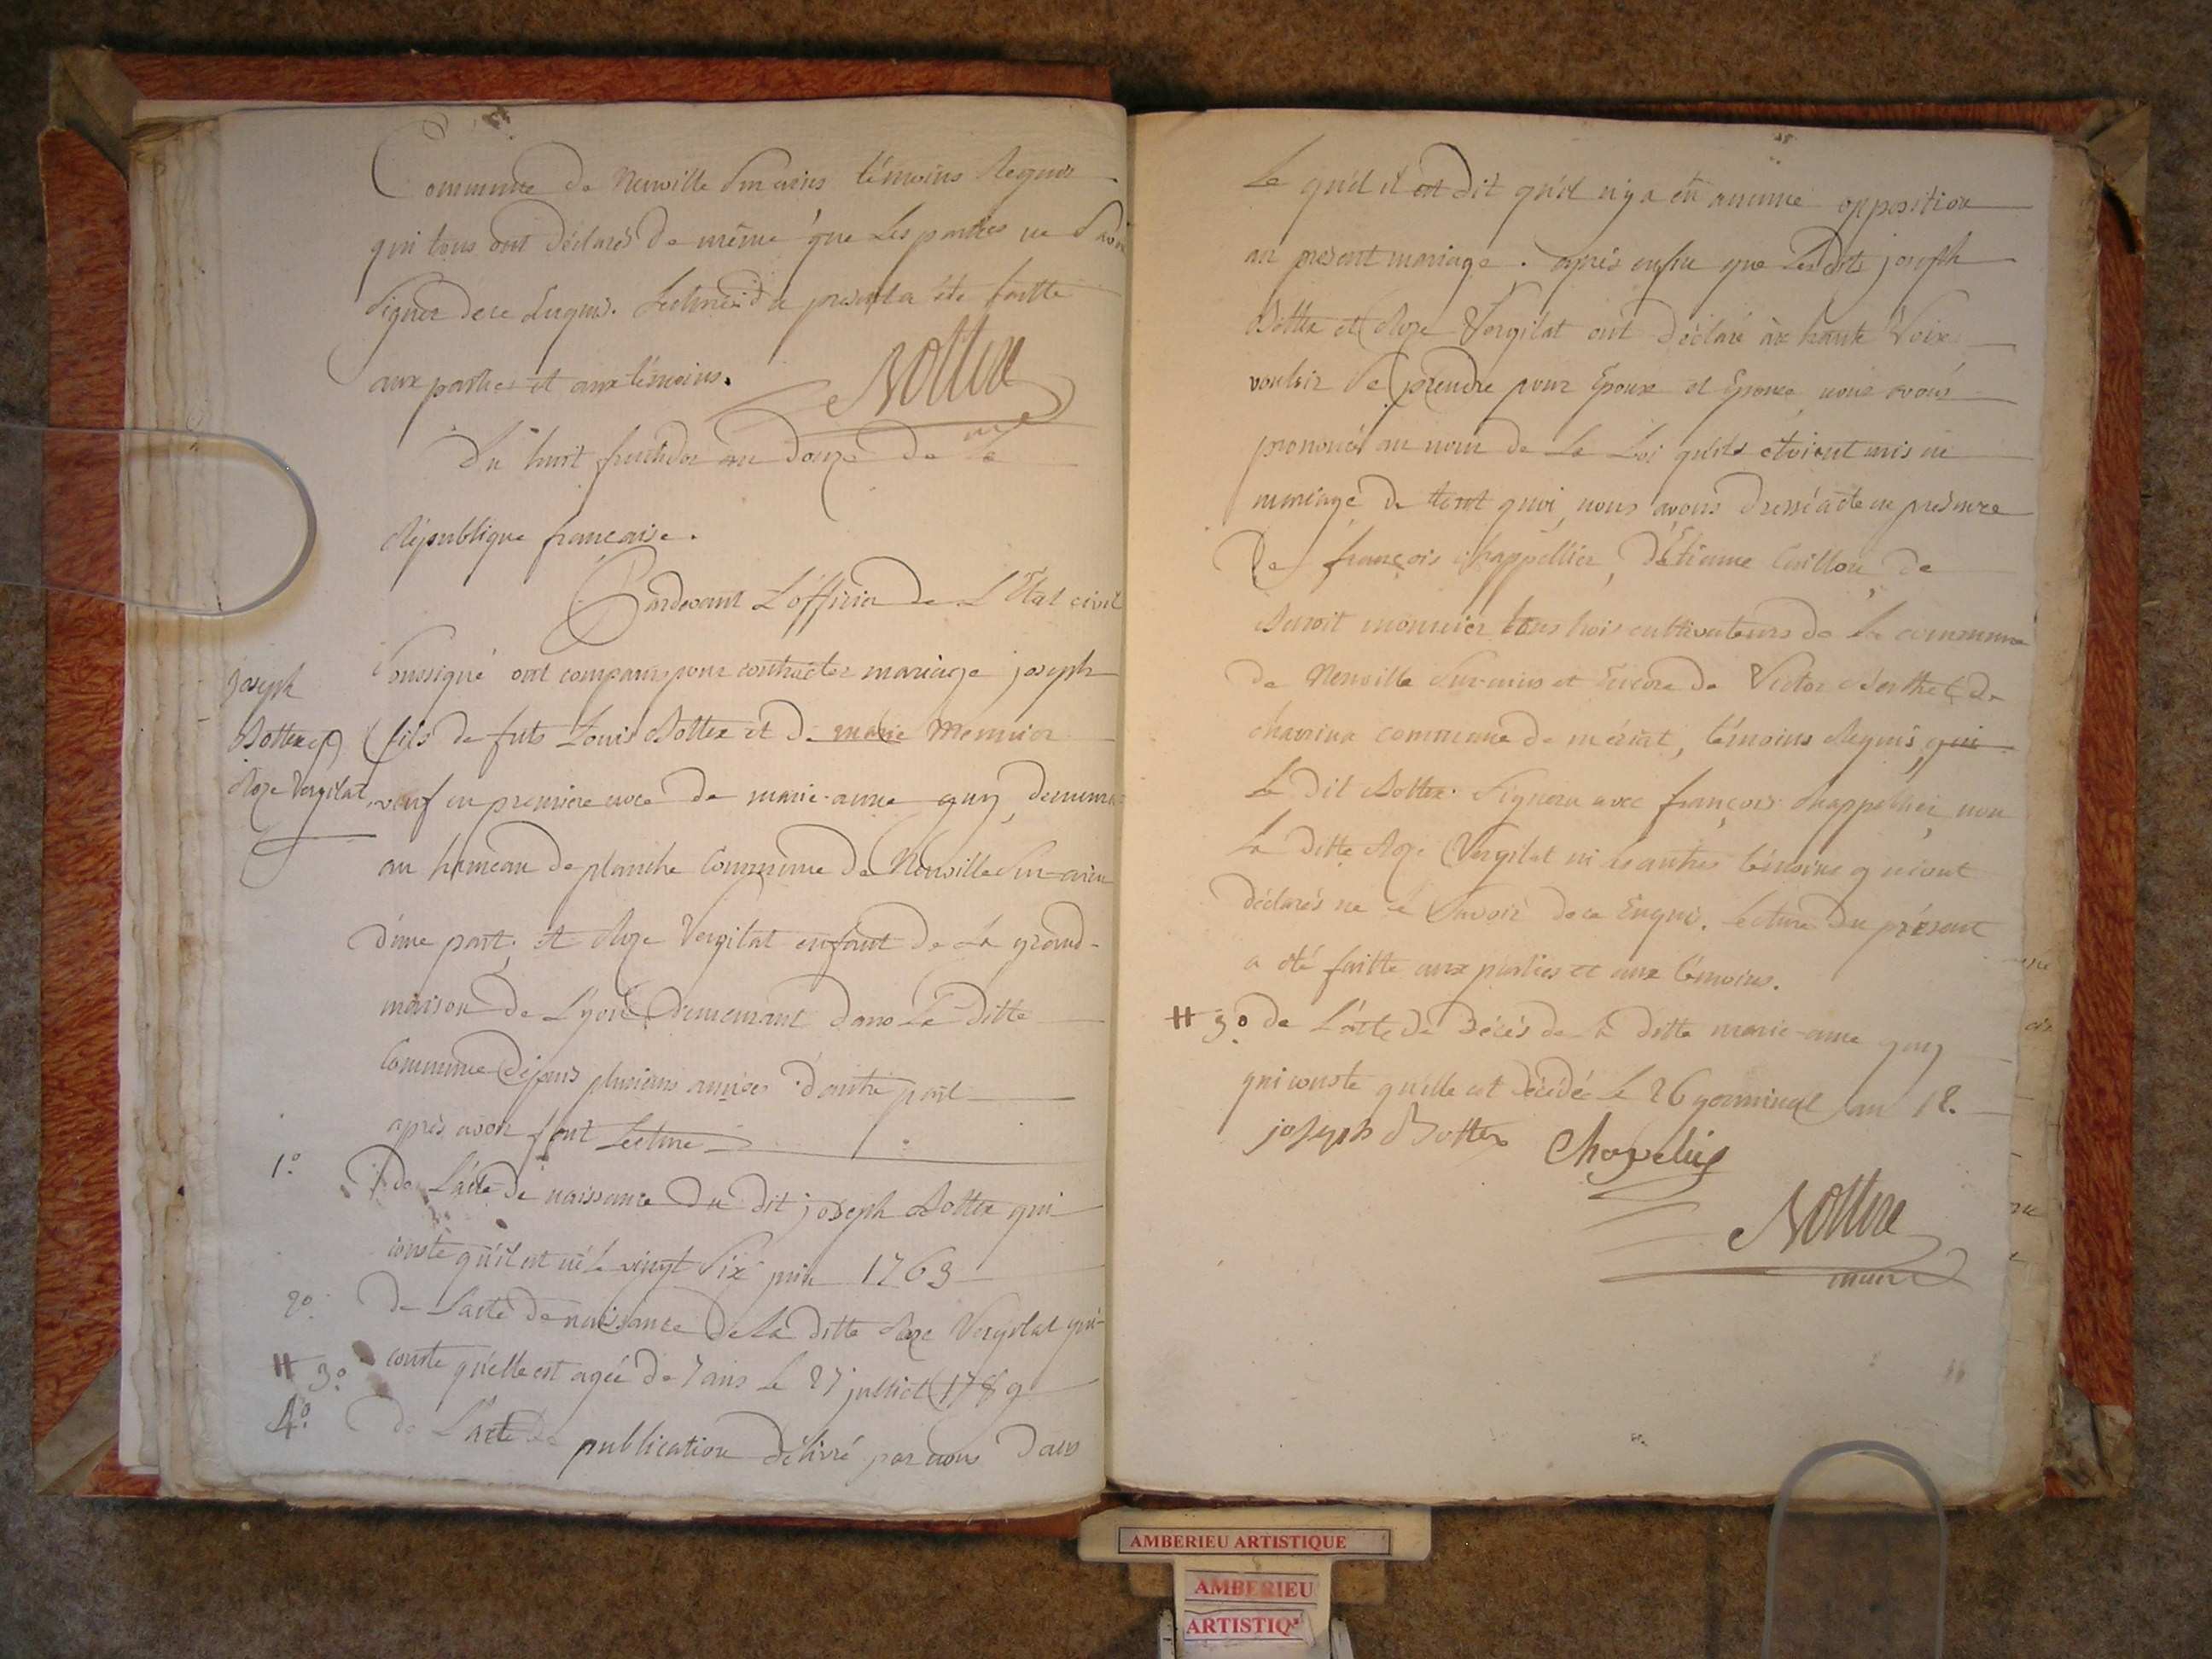 Commune de Neuville Sur ains témoins Requis
qui tous ont déclarés de même que Les parties ne Savoir
Signer de ce Enquis. Lecture du present a été faitte
aux parties et aux témoins.
Nottere
Du huit fructidor an douze de la
République francaise.
Pardevant L'officier de L'Etat civil
Soussigné ont comparus pour contracter mariage joseph
Joseph
Bottex et
Roze Vergilat
fils de futs Louis Bottex et de marie Meunier
veuf en premiere noce de marie-anne guy, demeurant
au hameau de planche Commune de Neuville Sur-ains
d'une part, et Roze Vergilat enfant de La grand-
maison de Lyon demeurant dans La ditte
Commune depuis plusieurs années d'autre part
après avoir fait Lecture
1.º de L'acte de naissance du dit joseph Bottex qui
conste qu'il est né le vingt Six juin 1763
2º. de L'acte de naissance de La ditte Roze Vergilat qui
conste qu'elle est agée de 7 ans le 27 julliet 1789
# 3º.
4º. de L'acte de publication délivré par nous dans
Le quel il est dit qu'il n'y a eu aucune opposition
au present mariage. après enfin que Les dits joseph
Bottex et Roze Vergilat ont déclaré à haute Voix
vouloir Se prendre pour Epoux et Epouse, nous avons
prononcés au nom de La Loi qu'ils étoient unis en
mariage de tout quoi nous avons dressé acte en présence
De françois Chappellier, d'Etienne de
Benoit monnier tous trois cultivateurs de La commune
de Neuville Sur-ains et Encore de Victor Berthet de
commune de mériat, témoins Requis, qui
Le dit Bottex Signera avec françois Chappellier, non
La ditte Roze Vergilat ni les autres témoins qui ont
déclarés ne le Savoir de ce Enquis. Lecture du présent
a été faitte aux parties et aux témoins.
# 3º. de L'acte de décés de La ditte marie-anne guy
qui conste qu'elle est décédée le 26 germinal an 12.
joseph Bottex
Nottere
maire
AMBERIEU ARTISTIQUE
AMBERIEU
ARTISTIQ